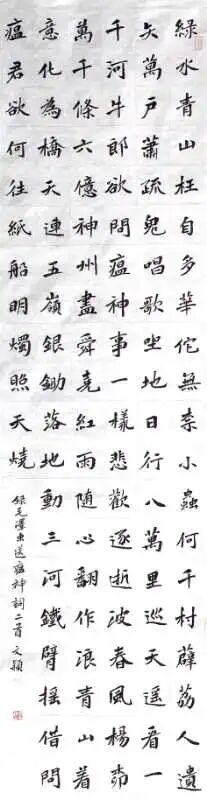 綠水青山枉自多華佗無奈小蟲何千村薜荔人遺
矢萬戶蕭疏鬼唱歌坐地日行八萬里巡天遥看一
千河牛郎欲問瘟神事一樣悲歡逐逝波春風楊柳
萬千條六億神州盡舜堯紅雨随心翻作浪青山着
意化為橋天連五嶺銀鋤落地動三河鐵臂摇借問
瘟君欲何往紙船明燭照天燒
録毛澤東送瘟神詞二首 文穎